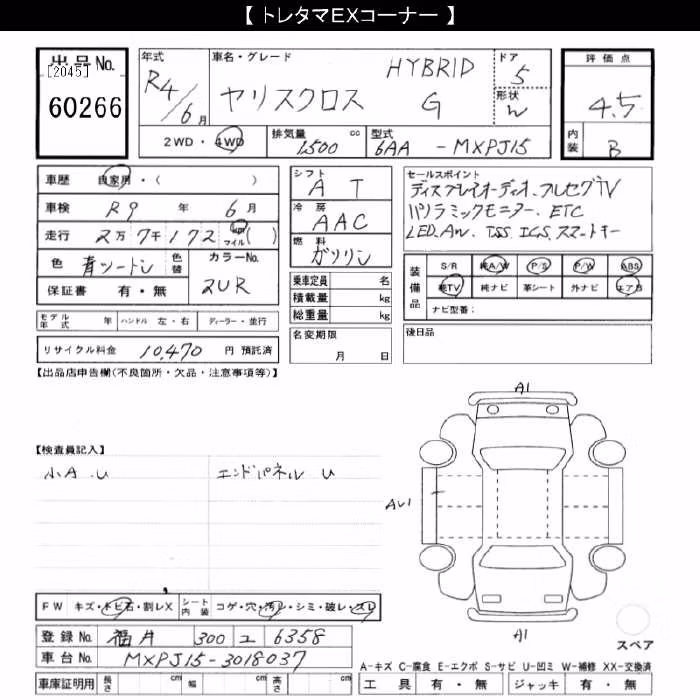 【 トレタマEXコーナー 】
出品No.
[2045]
60266
年式
R4/6月
車名・グレード
ヤリスクロス HYBRID G
ドア
5
形状
ワ
評価点
4.5
内装
B
2WD・4WD
排気量
1500 cc
型式
6AA - MXPJ15
車歴 自家用・( )
車検 R9 年 6 月
走行 2万7千172 km マイル ( )
色 青ツートン 色替
カラーNo.
2UR
保証書 有・無
シフト
AT
冷房
AAC
燃料
ガソリン
乗車定員 名
積載量 kg
総重量 kg
セールスポイント
ディスプレイオーディオ、フルセグTV
パノラミックモニター、ETC
LED、AW、TSS、ICS、スマートキー
装備品
S/R 純A/W P/S P/W ABS
純TV 純ナビ 革シート 外ナビ エアB
ナビ型番:
モデル年式 年 ハンドル 左・右 ディーラー・並行
名変期限
月 日
後日品
リサイクル料金 10,470 円 預託済
【出品店申告欄(不良箇所・欠品・注意事項等)】
【検査員記入】
小A.U エンドパネル U
A1
AU1
A1
FW キズ・トビ石・割レX
シート内装 コゲ・穴・汚レ・シミ・破レ・スレ
登録No. 福井 300 ユ 6358
車台No. MXPJ15-3018037
車庫証明用 長さ cm 幅 cm 高さ cm
スペア
A-キズ C-腐食 E-エクボ S-サビ U-凹ミ W-補修 XX-交換済
工具 有・無 ジャッキ 有・無